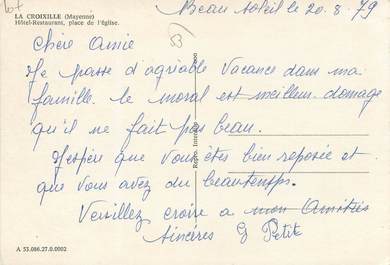 lot
LA CROIXILLE (Mayenne)
Hôtel-Restaurant, place de l'église.
Beau Soleil le 20.8.79
53
Chère Amie
Je passe d'agriable Vacance dans ma
famille. le moral est meilleur. domage
qu'il ne fait pas beau.
J'espère que vous êtes bien reposée et
que vous avez du beau temps.
Versillez croire a mon Amitiés
Sincères G Petit
Repro. Interd
A 53.086.27.0.0002